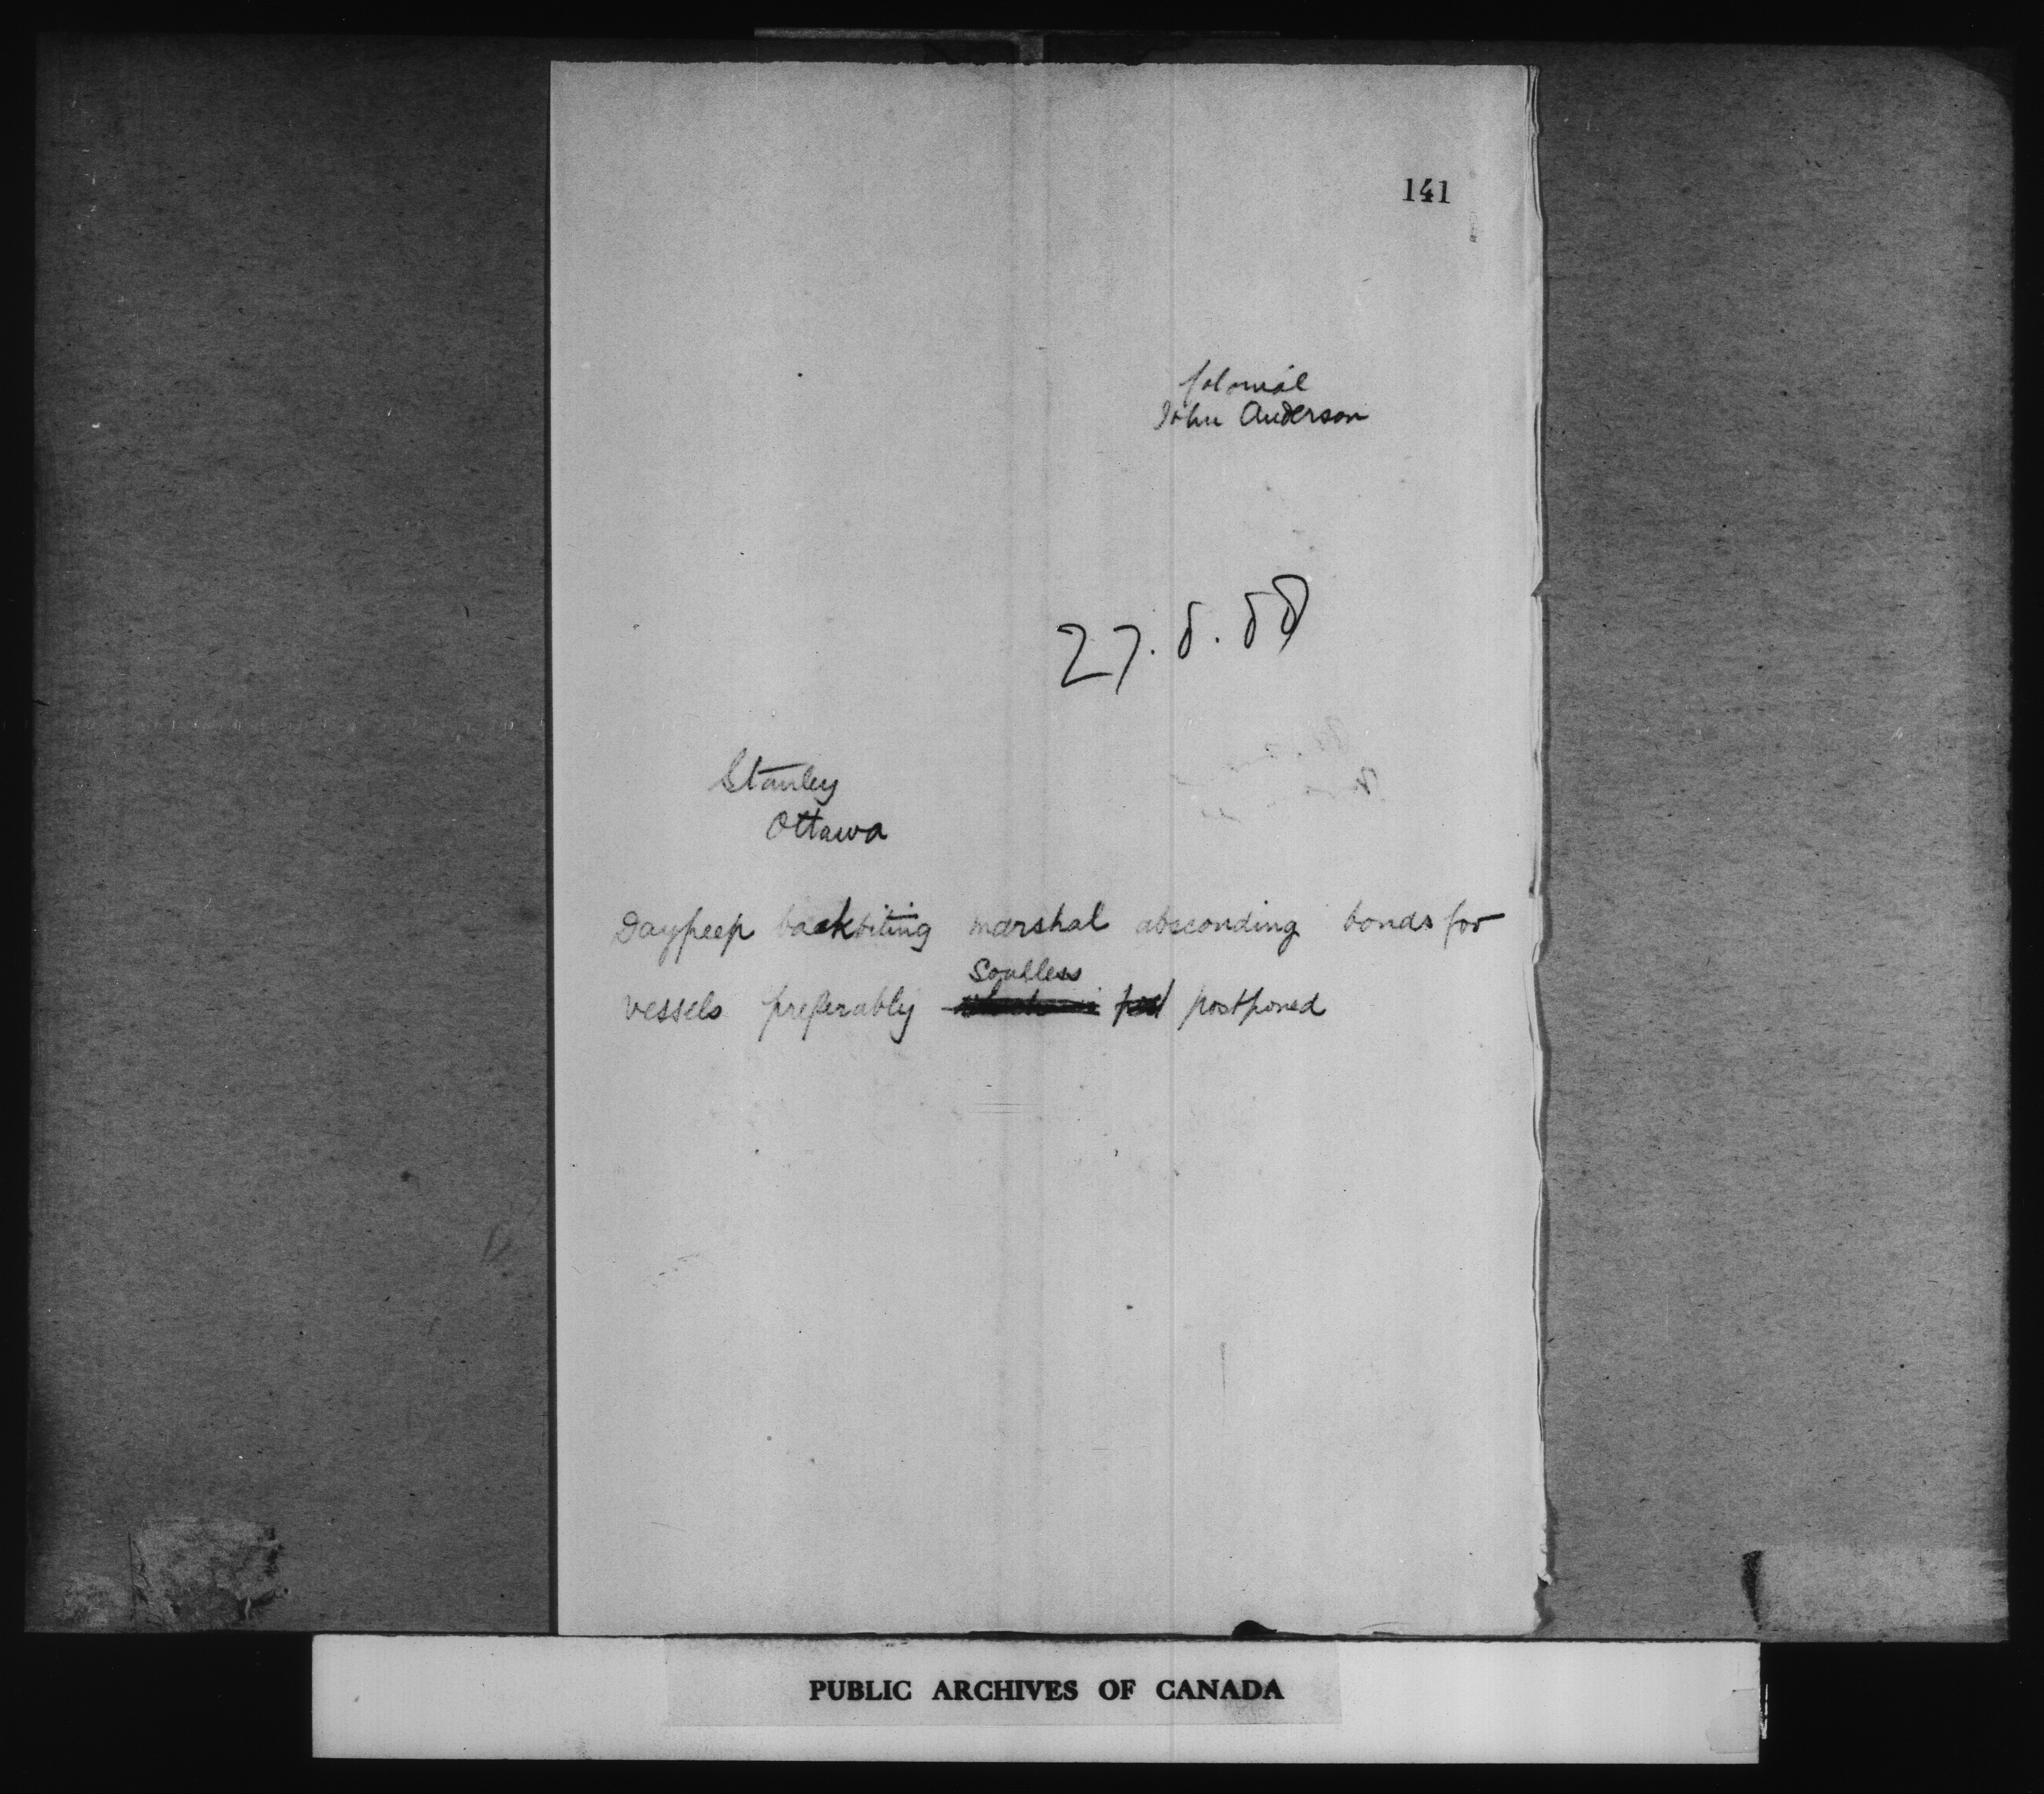 141
Colonial
John Anderson
27.8.88
Stanley
Ottawa
Daypeep backbiting marshal absconding bonds for
Soulless
vessels preferably postponed
PUBLIC ARCHIVES OF CANADA